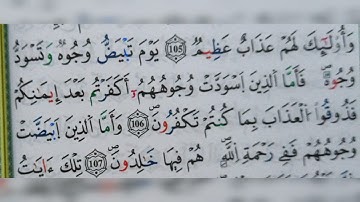 وَأُولَٰئِكَ لَهُمْ عَذَابٌ عَظِيمٌ ١٠٥ يَوْمَ تَبْيَضُّ وُجُوهٌ وَتَسْوَدُّ
وُجُوهٌ ۚ فَأَمَّا الَّذِينَ اسْوَدَّتْ وُجُوهُهُمْ أَكَفَرْتُم بَعْدَ إِيمَانِكُمْ
فَذُوقُوا الْعَذَابَ بِمَا كُنتُمْ تَكْفُرُونَ ١٠٦ وَأَمَّا الَّذِينَ ابْيَضَّتْ
وُجُوهُهُمْ فَفِي رَحْمَةِ اللَّهِ هُمْ فِيهَا خَالِدُونَ ١٠٧ تِلْكَ ءَايَاتُ